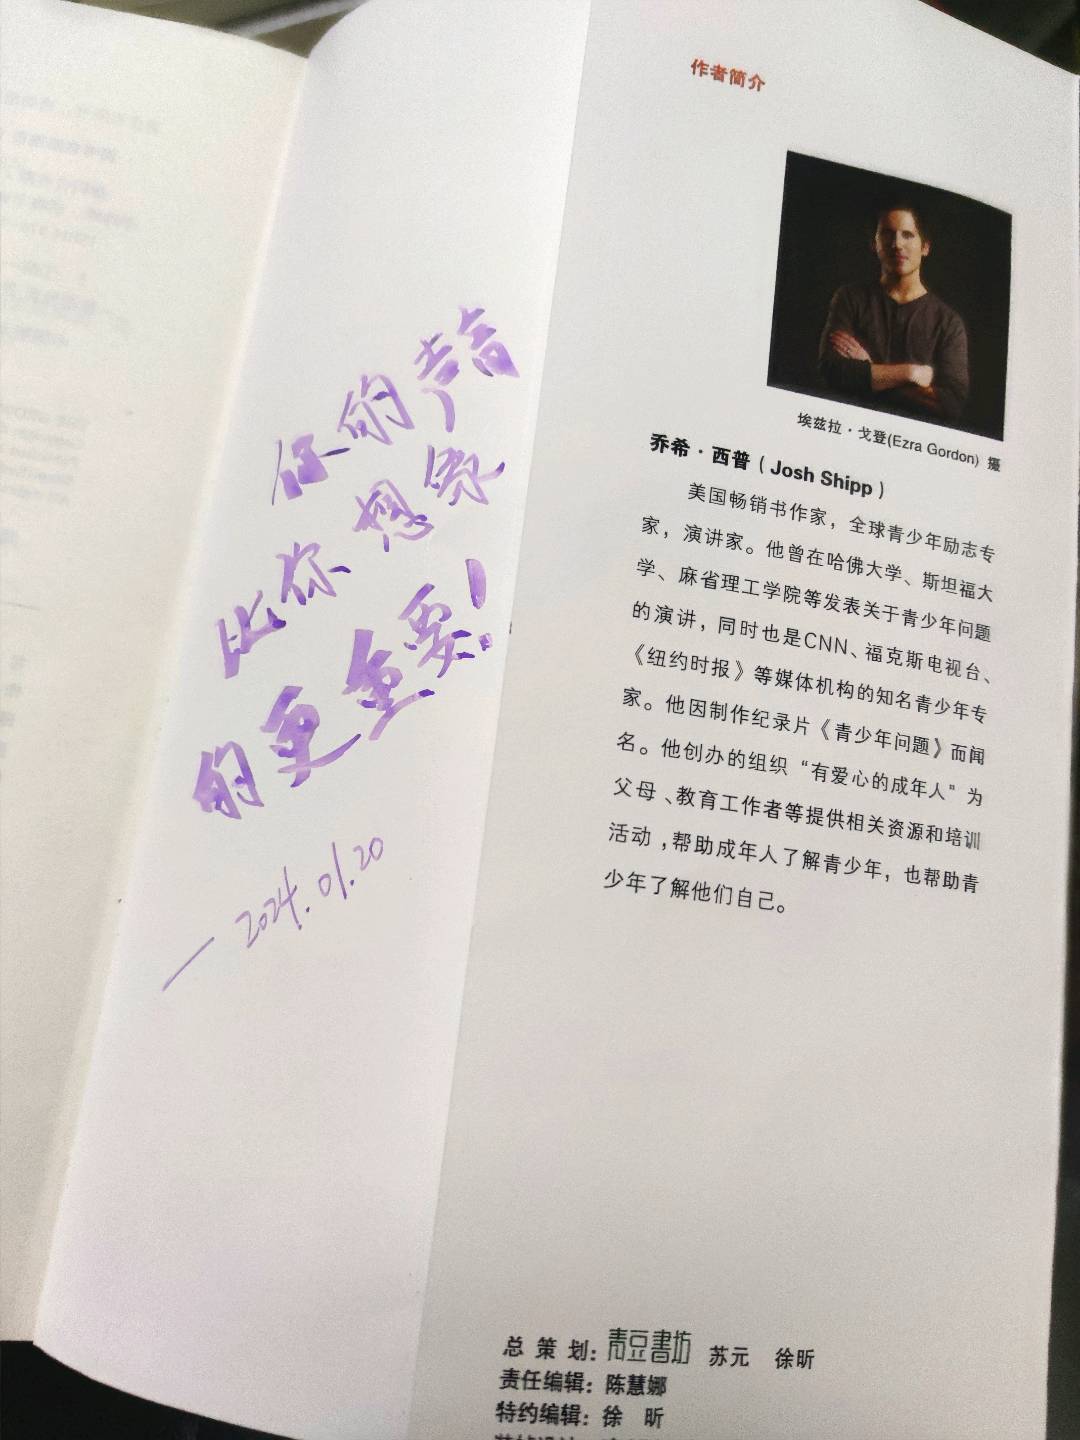 你的声音
比你想象
的更重要！
—2024.01.20
作者简介
埃兹拉·戈登(Ezra Gordon) 摄
乔希·西普（Josh Shipp）
美国畅销书作家，全球青少年励志专
家，演讲家。他曾在哈佛大学、斯坦福大
学、麻省理工学院等发表关于青少年问题
的演讲，同时也是CNN、福克斯电视台、
《纽约时报》等媒体机构的知名青少年专
家。他因制作纪录片《青少年问题》而闻
名。他创办的组织“有爱心的成年人”为
父母、教育工作者等提供相关资源和培训
活动，帮助成年人了解青少年，也帮助青
少年了解他们自己。
总 策 划：青豆書坊 苏元 徐昕
责任编辑：陈慧娜
特约编辑：徐 昕